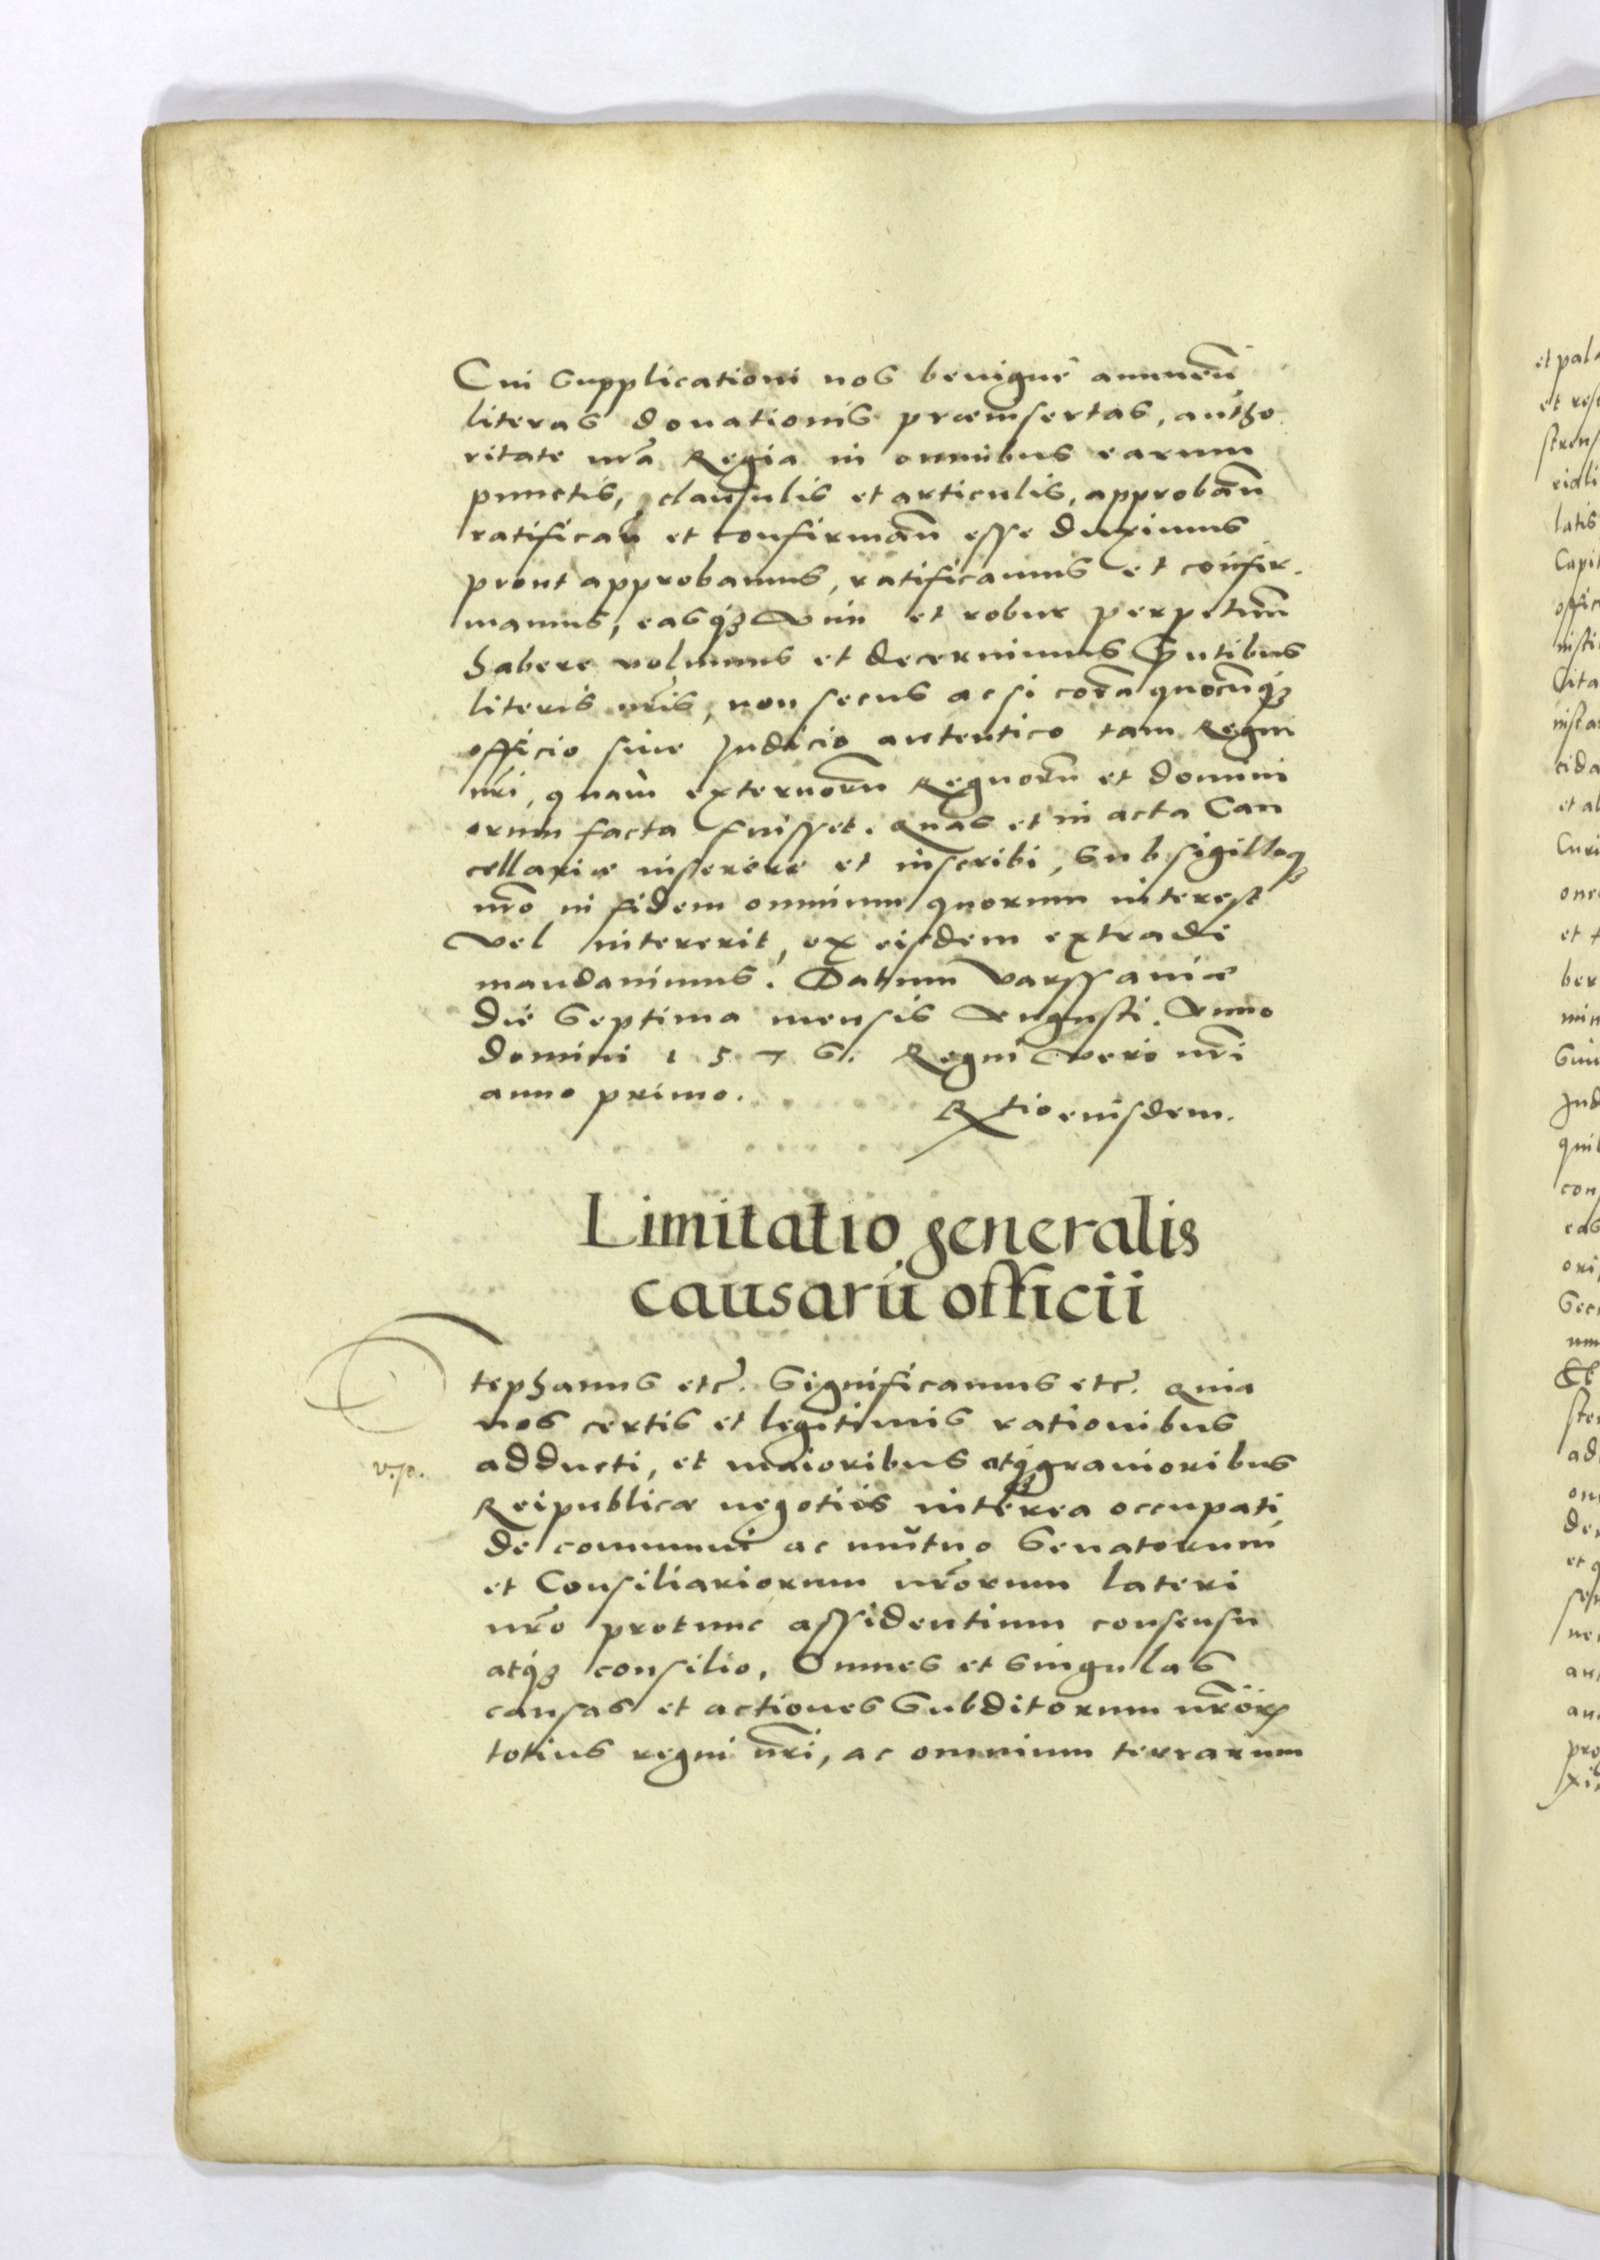 Cui supplicationi nos benignè annueñ
literas donationis præinsertas, autho
ritate nr̃a Regia in omnibus earum
punctis, clausulis et articulis, approbañ
ratificañ et confirmañ esse duximus
prout approbamus, ratificamus et confir-
mamus, easq́ꝫ vim et robur perpetuũ
habere volumus et decernimus p̃ntibus
literis nr̃is, non secus ac si corã quocũq́ꝫ
officio siue Judicio autentico tam Regni
nr̃i, quàm externorũ Regnorũ et domini
orum facta fuisset. Quas et in acta Can
cellariæ inserere et inscribi, sub sigilloq́
nr̃o in fidem omnium quorum interest
vel intererit, ex eisdem extradi
mandauimus. Datum Varssauiæ
die septima mensis Augusti. Anno
domini 1576. Regni vero nr̃i
anno primo.
Rtio eiusdem.
Limitatio generalis
causarũ officii
Stephanus etc̃. Significamus etc̃. Quia
nos certis et legitimis rationibus
v.p.
adducti, et maioribus atq́ꝫ grauioribus
Reipublicæ negotiis interea occupati,
de communi ac mutuo Senatorum
et Consiliariorum nr̃orum lateri
nr̃o protunc assidentium consensu
atq́ꝫ consilio, Omnes et singulas
causas et actiones subditorum nr̃oꝝ
totius regni nr̃i, ac omnium terrarum